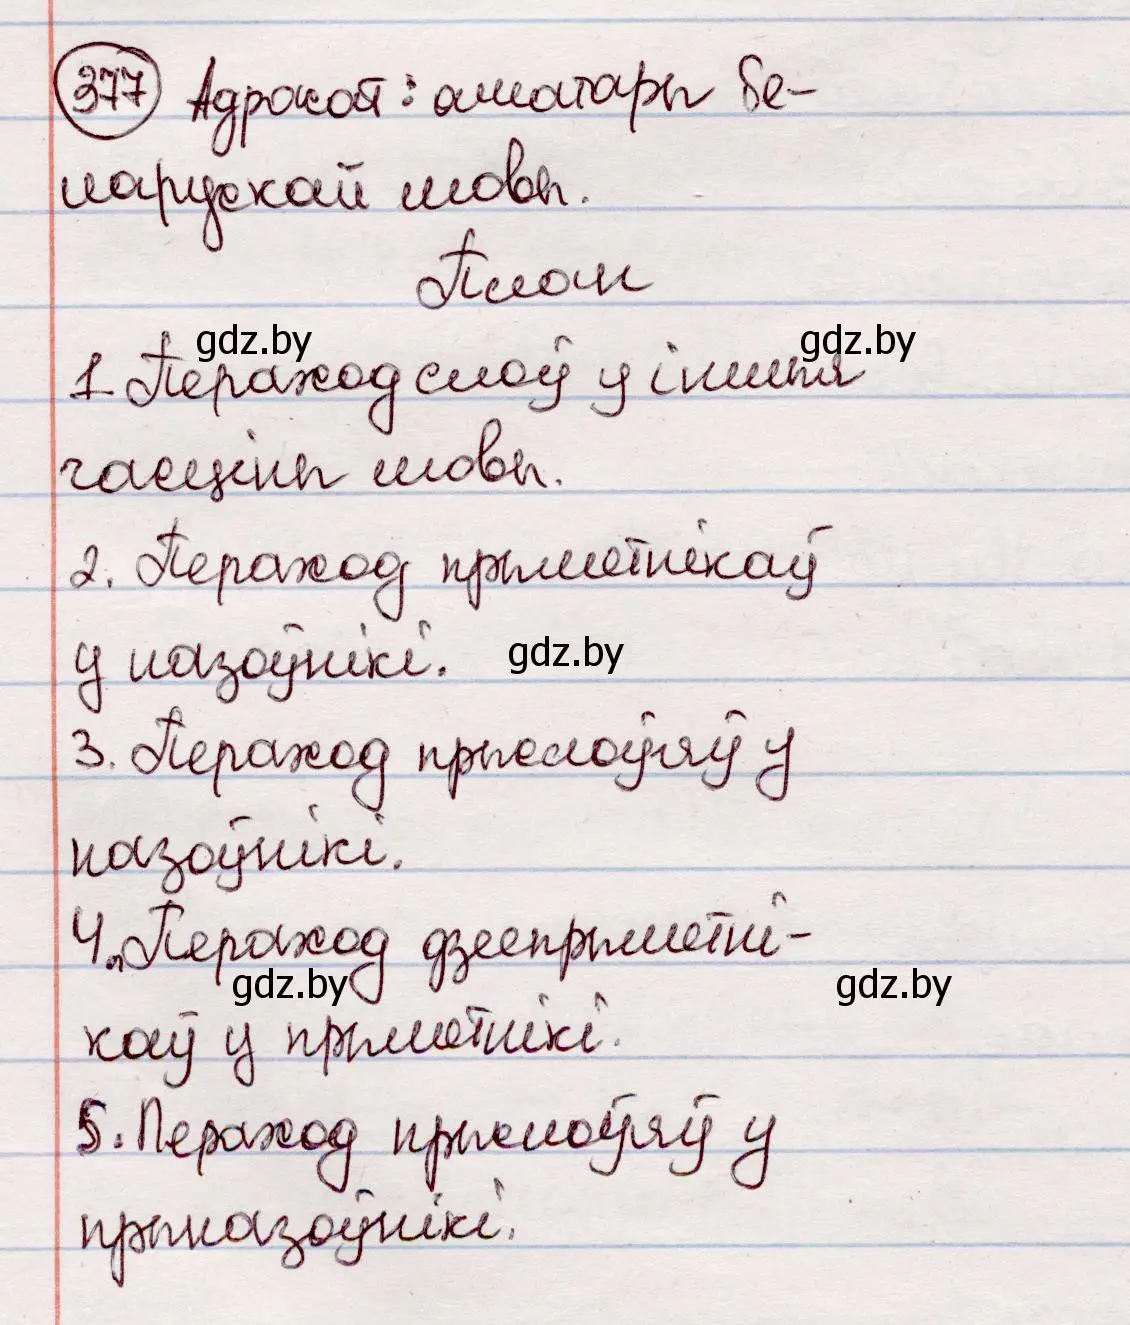 377 Адрасат: аматары бе-
ларускай мовы.
План
gdz.by gdz.by
1. Пераход слоў у іншыя
часціны мовы.
2. Пераход прыметнікаў
у назоўнікі. gdz.by
3. Пераход прыслоўяў у
назоўнікі.
4. Пераход дзеепрыметні-
gdz.by gdz.by
каў у прыметнікі.
5. Пераход прыслоўяў у
прыназоўнікі.